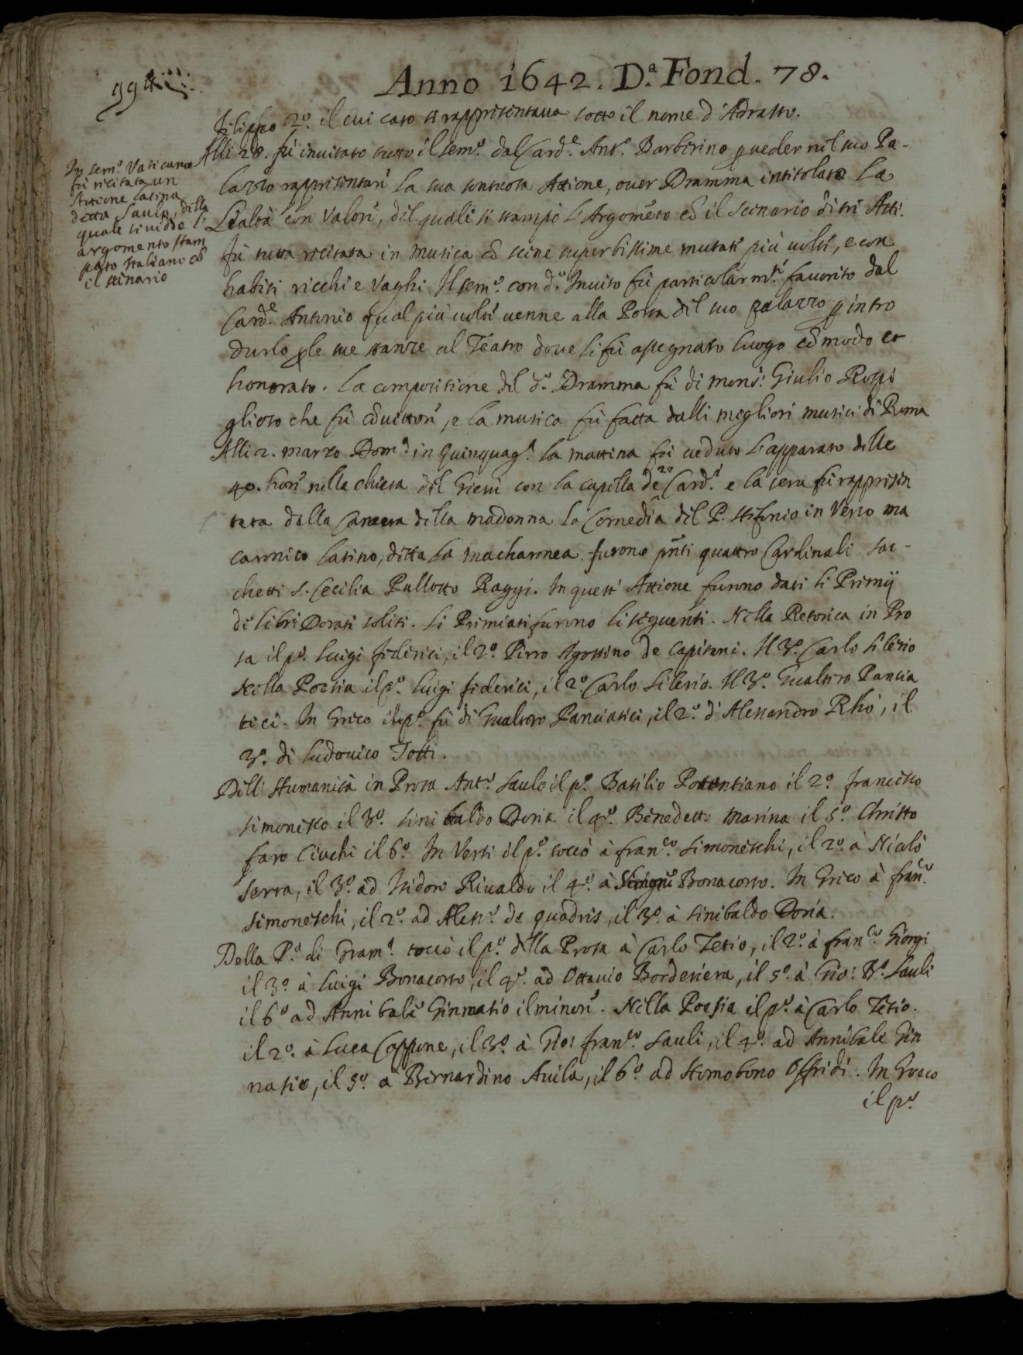 Anno 1642. D.ª Fond. 78.
994
In Sem.º Vaticano
fù recitata un
Attione latina
detta Saule, della
quale si vidde l'
argomento stam
pato Italiano cõ
il scenario
Filippo 2.º il cui caso si rappresentava sotto il nome d'Adrasto.
Alli 28. fù invitato tutto il Sem.º dal Card.e Ant.º Barberino p veder nel suo Pa-
lazzo rappresentare la sua sontuosa Attione, over Dramma intitolato La
Lealtà con Valore, del quale si stampò l'Argomẽto cõ il scenario di tre Atti.
Fù tutta recitata in musica cõ scene superbissime mutate più volte, e con
habiti ricchi e vaghi. Il Sem.º con d.º Invito fù particolarm.te favorito dal
Card.e Antonio qual più volte venne alla Porta del suo palazzo p intro
durlo p le sue stanze al Teatro dove li fù assegnato luogo cõmodo et
honorato. La compositione del d.º Dramma fù di mons.r Giulio Rospi
glioso che fù cõvittore, e la musica fù fatta dalli megliori musici di Roma
Alli 2. marzo Dom.ª in Quinquag.ª la mattina fù veduto l'apparato delle
40. hore nella chiesa del Giesù con la capella de Card.i e la sera fù rappresen
tata dalla Camera della madonna la Comedia del P. Stefonio in Verso ma
caronico latino, detta La Macharonea. furono pñti quattro Cardinali Sac-
chetti S. Cecilia Pallotto Raggi. In quest' Attione furono dati li Premij
de libri Dorati soliti. Li Premiati furono li seguenti. Nella Retorica in Pro
sa il p.º Luigi federici, il 2.º Pirro Agostino de Capitani. Il 3.º Carlo Silerio
Nella Poesia il p.º Luigi federici, il 2.º Carlo Silerio. Il 3.º Gualtero Pancia
tici. In Greco il p.º fù di Gualtero Panciatici, il 2.º d'Alessandro Rhò, il
3.º di Ludovico Totti.
Dell' Humanità in Prosa Ant.º Saulo il p.º Basilio Potentiano il 2.º francesco
Simonesco il 3.º Sinibaldo Doria il 4.º Benedetto Marina il 5.º Christo
faro Ciuchi il 6.º In Versi il p.º toccò à fran.co Simoneschi, il 2.º à Nicolò
Serra, il 3.º ad Isidoro Rivaldo il 4.º à Bonacorso. In Greco à fran.co
Simoneschi, il 2.º ad Aless.º de quadris, il 3.º à Sinibaldo Doria.
Della P.ª di Gram.ª toccò il p.º della Prosa à Carlo Tetio, il 2.º à fran.co Giorgi
il 3.º à Luigi Bonacorso, il 4.º ad Ottavio Borderiera, il 5.º à Gio: B.ª Sauli
il 6.º ad Annibale Ginnasio il minore. Nella Poesia il p.º à Carlo Tetio.
il 2.º à Luca Cappone, il 3.º à Gio: fran.co Sauli, il 4.º ad Annibale Gin
nasio, il 5.º a Bernardino Avila, il 6.º ad Homobono Offredi. In Greco
il p.º